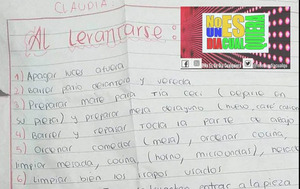 CLAUDIA
AL levantarse:
NO ES
UN
DIA CUALQUIERA
1) Apagar luces afuera
2) Barrer patio delantero y vereda
3) Preparar mate para tia Ceci (dejarlo en
su pieza) y preparar mesa desayuno (
4) Barrer y repasar toda la parte de abajo
5) Ordenar comedor (mesa), ordenar cocina,
limpiar mesada, cocina, (horno, microondas),
6) Limpiar bien los trapos usados
entrar a la pieza